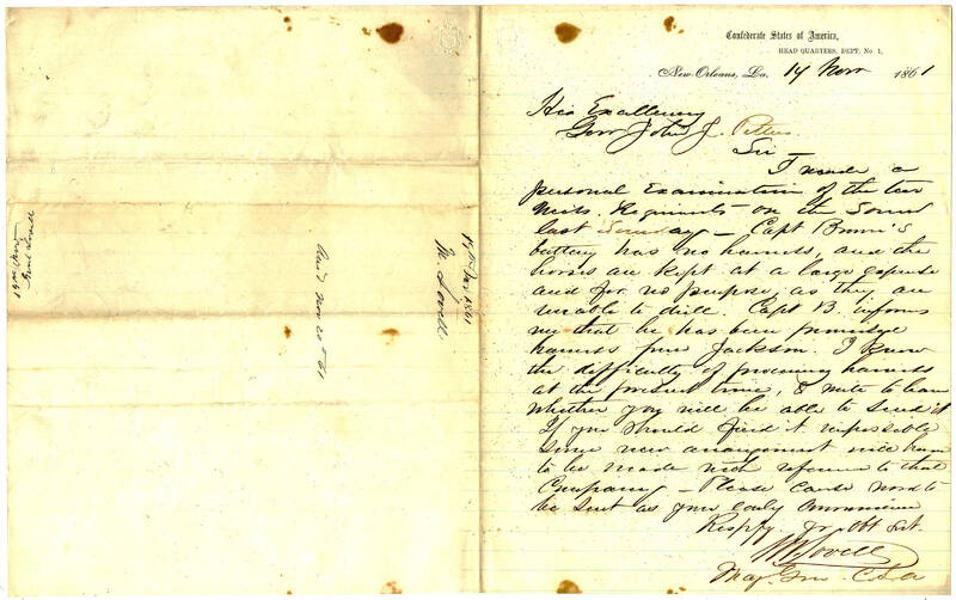 Confederate States of America,
HEAD QUARTERS, DEPT. No 1,
New Orleans, La. 14 Nov 1861
His Excellency
Gov John J. Pettus
Sir –
I made a
personal Examination of the two
Miss. Regiments on the Sound
last Sunday – Capt Brown's
battery has no harness, and the
horses are kept at a large expense
and for no purpose, as they are
unable to drill. Capt B. informs
me that he has been promised
harness from Jackson. I know
the difficulty of procuring harness
at the present time, & write to learn
whether you will be able to send it
If you should find it impossible
some new arrangement will have
to be made with reference to that
Company – Please cause word to
be sent at your early convenience
Respy Yr Obt Svt.
M Lovell
Maj. Gen C.S.A
1861
M. Lovell
Recd Nov 20th 61
Genl Lovell